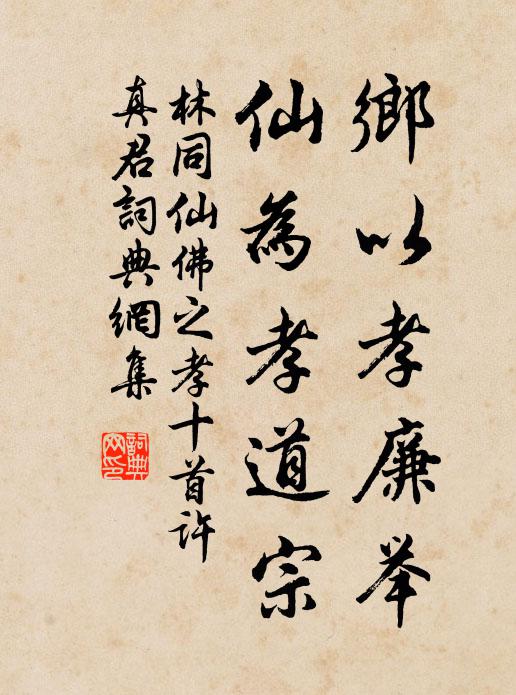 鄉以孝廉举
仙為孝道宗
林同仙佛之孝十首许
真君詞典網集
詞典
网印